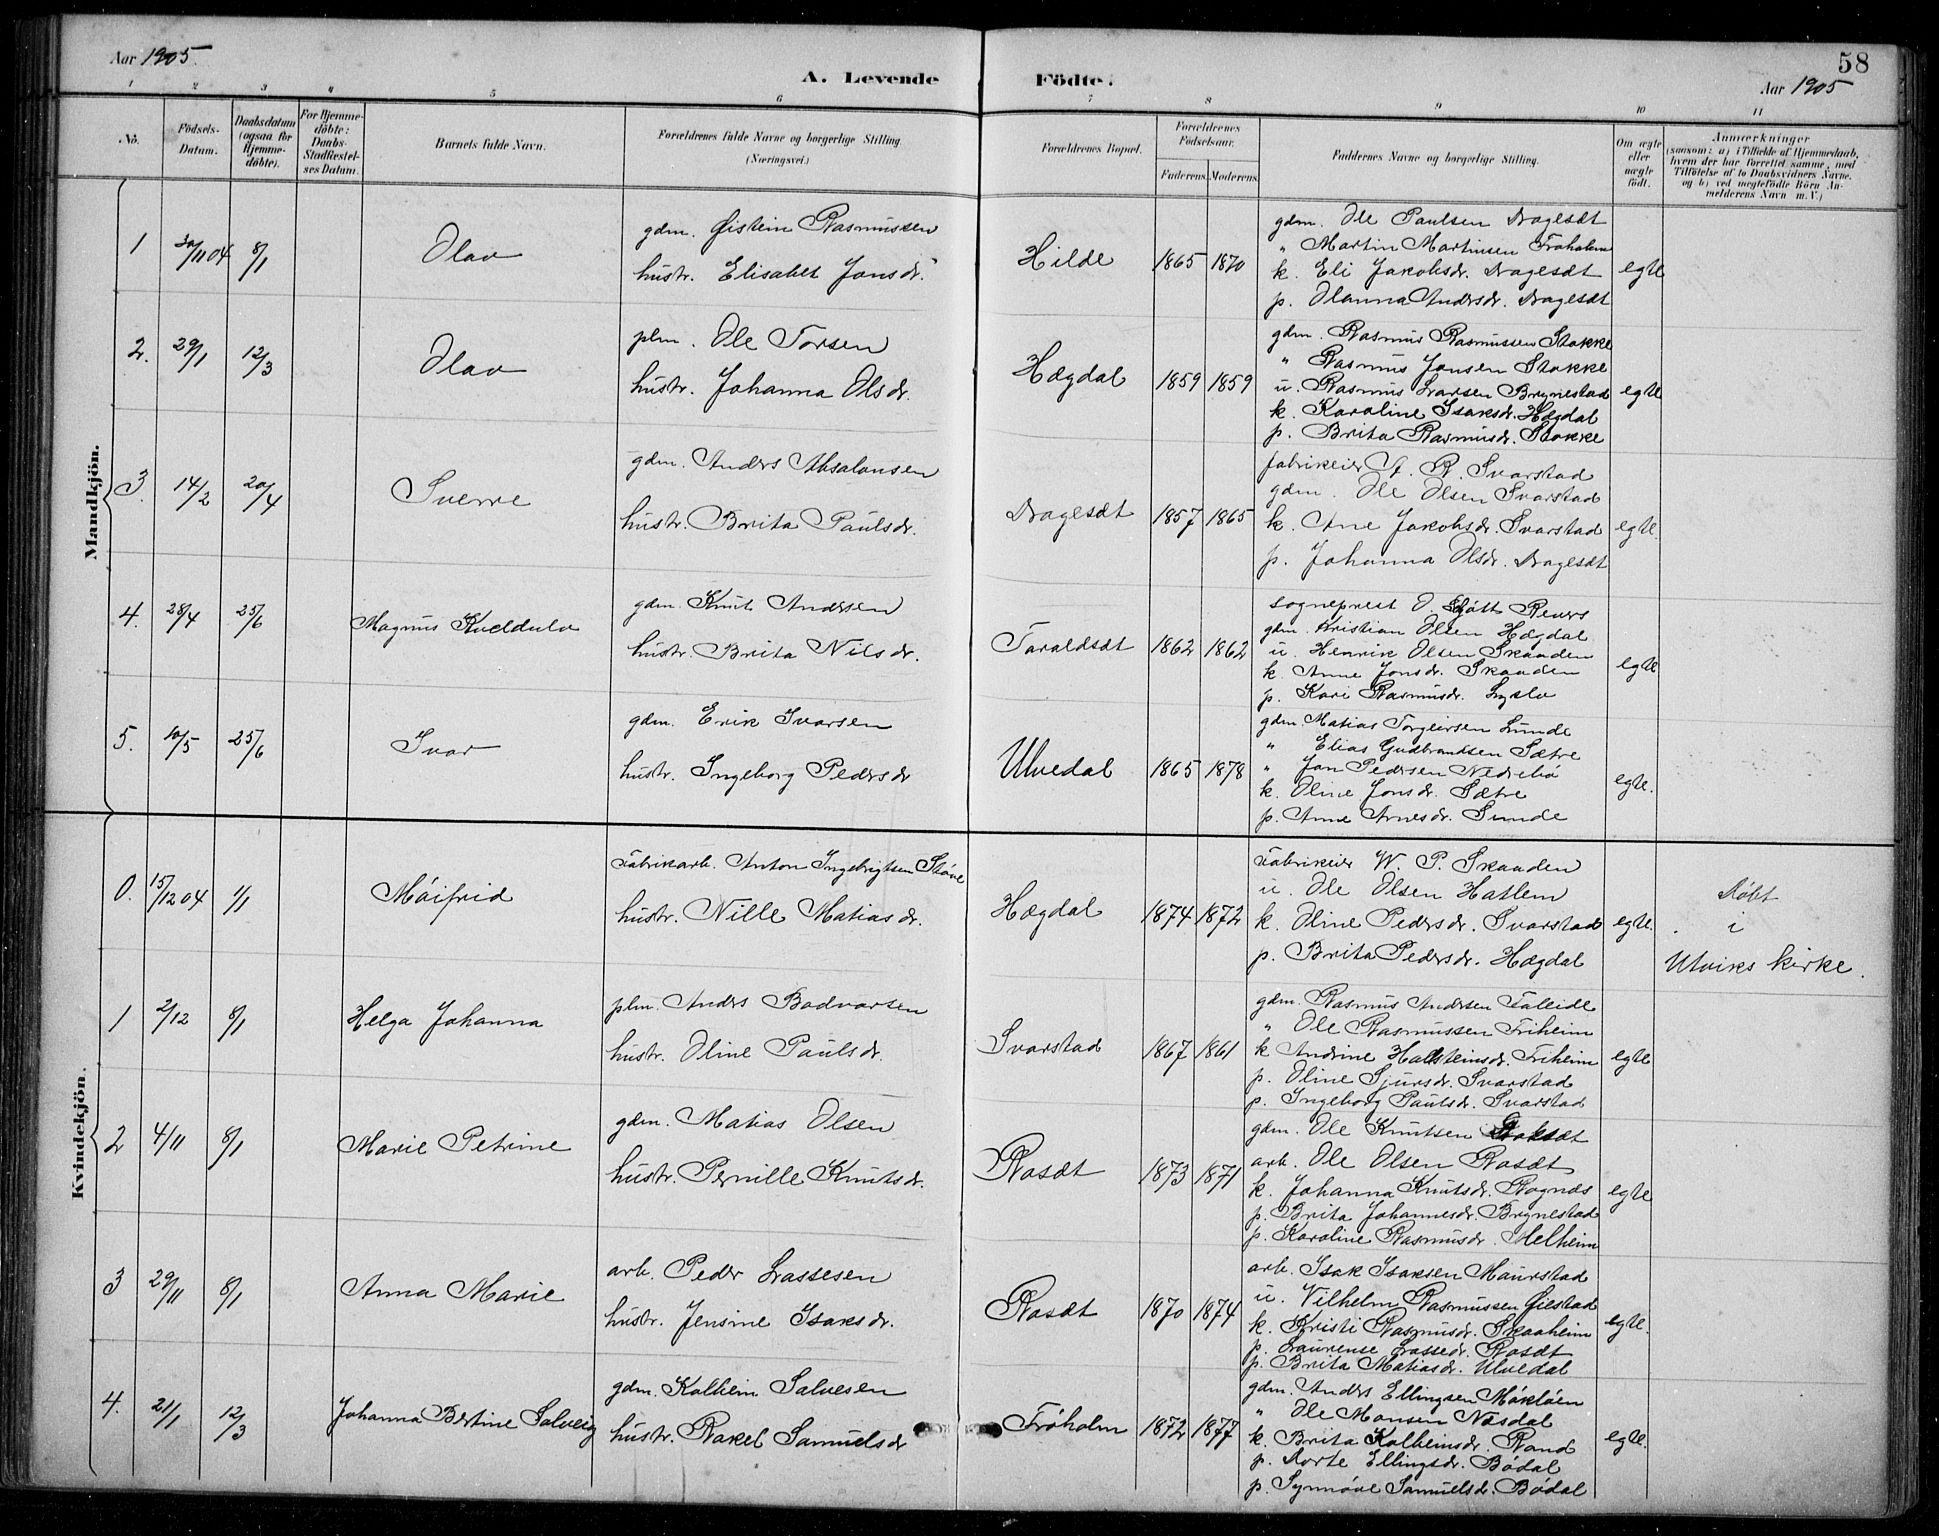 58
Aar 1905.
A. Levende Födte.
Aar 1905
1 2 3 4 5 6 7 8 9 10 11
No.
Födsels-Datum.
Daabsdatum (ogsaa for Hjemme-döbte).
For Hjemme-döbte: Daabs-Stadfæstel-ses Datum.
Barnets fulde Navn.
Forældrenes fulde Navne og borgerlige Stilling
(Næringsvei.)
Forældrenes Bopæl.
Forældrenes Födselsaar.
Faderens. Moderens.
Faddernes Navne og borgerlige Stilling.
Om ægte eller uægte födt.
Anmærkninger
(saasom: a) i Tilfælde af Hjemmedaab,
hvem der har forrettet samme, med
Tilföielse af to Daabsvidners Navne.
og b) ved uægtefödte Börn An-
melderens Navn m. V.)
Mandkjön.
1 30/11 04 8/1 Olav
gdm. Øistein Rasmussen
hustr. Elisabet Jonsdr.
Hilde 1865 1870
gdm. Ole Paulsen Dragesæt
" Martin Martinsen Frøholm
k. Eli Jakobsdr. Dragesæt
p. Olanna Andersdr. Dragesæt
egte
2. 29/1 12/3 Olav
plm. Ole Torsen
hustr. Johanna Olsdr.
Hægdal 1859 1859
gdm. Rasmus Rasmussen Stokke
" Rasmus Jonsen Stokke
u. Rasmus Larsen Brynestad
k. Karoline Isaksdr. Hægdal
p. Brita Rasmusdr. Stokke
egte
3. 14/2 20/4 Sverre
gdm. Anders Absalonsen
hustr. Brita Paulsdr.
Dragesæt 1857 1865
fabrikeier A. R. Svarstad
gdm. Ole Olsen Svarstad
k. Ane Jakobsdr. Svarstad
p. Johanna Olsdr. Dragesæt
egte.
4. 28/4 25/6 Magnus Kveldulv
gdm. Knut Andersen
hustr. Brita Nilsdr.
Taraldsæt 1862 1862
sogneprest O.
gdm. Kristian Olsen Hægdal
u. Henrik Olsen Skaaden
k. Anne Jonsdr. Skaaden
p. Kari Rasmusdr.
egte
5. 10/5 25/6 Ivar
gdm. Erik Ivarsen
hustr. Ingeborg Pedersdr
Ulvedal 1865 1878
gdm. Matias Torgeirsen Lunde
" Elias Gudbrandsen Sætre
" Jon Pedersen Nedrebø
k. Oline Jonsdr. Sætre
p. Anne Arnesdr. Sunde
egte.
Kvindekjön.
0. 15/12 04 1/1 Móifrid
Fabrikarb. Anton Ingebrigtsen Støve
hustr. Nille Matiasdr.
Hægdal 1874 1872
Fabrikeier W. P. Skaaden
u. Ole Olsen Hatlem
k. Oline Pedersdr. Svarstad
p. Brita Pedersdr. Hægdal
egte.
Døbt
i
Utviks kirke.
1 2/12 8/1 Helga Johanna
plm. Anders Bodvarsen
hustr. Oline Paulsdr.
Svarstad 1867 1861
gdm. Rasmus Andersen Faleide
" Ole Rasmussen Friheim
k Andrine Hallsteinsdr. Friheim
p. Oline Sjursdr. Svarstad
p. Ingeborg Paulsdr. Svarstad
egte
2 4/11 8/1 Marie Petrine
gdm. Matias Olsen
hustr. Pernille Knutsdr.
Rosæt 1873 1871
gdm. Ole Knutsen
arb. Ole Olsen Rosæt
k. Johanna Knutsdr. Rognes
p. Brita Johannesdr. Brynestad
p. Karoline Rasmusdr. Melheim
egte
3 29/11 8/1 Anna Marie
arb. Peder Lassesen
hustr. Jensine Isaksdr.
Rosæt 1870 1874
arb. Isak Isaksen Maurstad
u. Vilhelm Rasmussen Øiestad
k. Kristi Rasmusdr. Skaaheim
p. Laurense Lassedr. Rosæt
p. Brita Matiasdr. Ulvedal
egte.
4. 21/1 12/3 Johanna Bertine Solveig
gdm. Kolbein Salvesen
hustr. Rakel Samuelsdr
Frøholm 1872 1877
gdm. Anders Ellingsen Mókløen
" Ole Monsen Nesdal
k. Brita Kolbeinsdr. Rand
p. Dorte Ellingsdr. Bødal
p. Synnøve Samuelsdr. Bødal
egte.